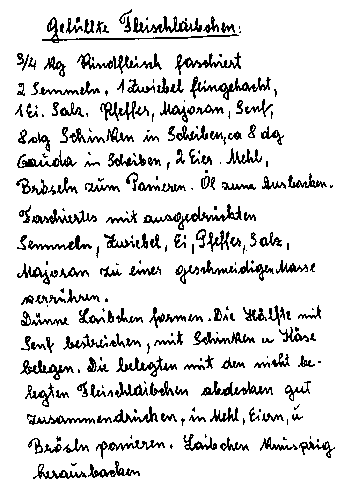 Gefüllte Fleischlaibchen:
3/4 kg Rindfleisch faschiert
2 Semmeln, 1 Zwiebel feingehackt,
1 Ei. Salz, Pfeffer, Majoran, Senf,
8 dg Schinken in Scheiben, ca 8 dg
Gauda in Scheiben, 2 Eier. Mehl,
Bröseln zum Panieren. Öl zum Ausbacken.
Faschiertes mit ausgedrückten
Semmeln, Zwiebel, Ei, Pfeffer, Salz,
Majoran zu einer geschmeidigen Masse
verrühren.
Dünne Laibchen formen. Die Hälfte mit
Senf bestreichen, mit Schinken u Käse
belegen. Die belegten mit den nicht be-
legten Fleischlaibchen abdecken gut
zusammendrücken, in Mehl, Eiern, u
Bröseln panieren. Laibchen knusprig
herausbacken